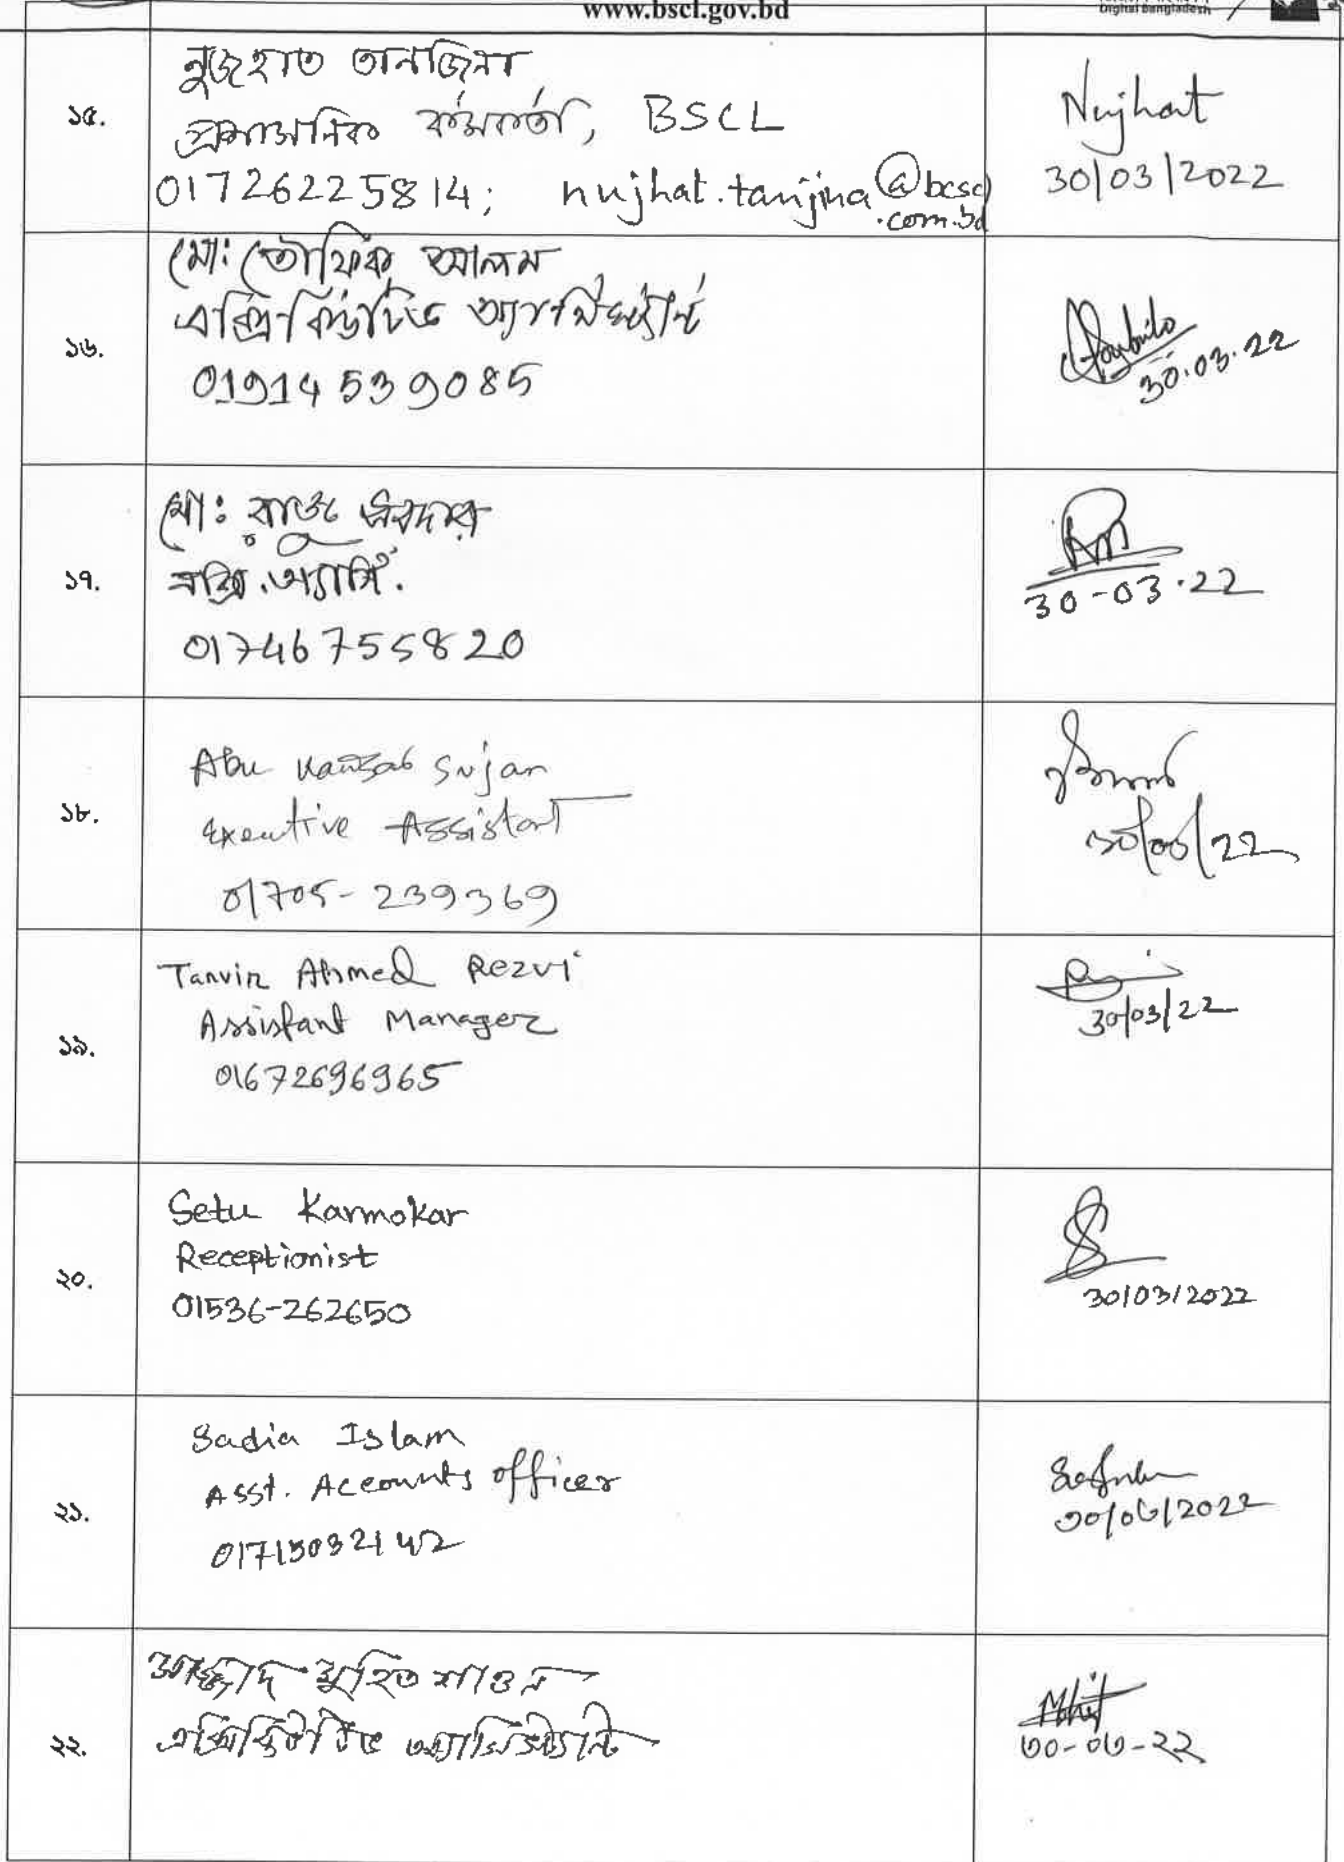 www.bscl.gov.bd
Digital Bangladesh
১৫.
নুজহাত তানজিনা
প্রশাসনিক কর্মকর্তা, BSCL
01726225814; nujhat.tanjina@bcscl
.com.bd
Nujhat
30/03/2022
১৬.
মো: তৌফিক আলম
এক্সিকিউটিভ অ্যাসিস্ট্যান্ট
01914539085
30.03.22
১৭.
মো: রাজু
এক্সি. অ্যাসি.
01746755820
30-03.22
১৮.
Abu Sujan
Executive Assistant
01705-239369
৩০/০৩/22
১৯.
Tanvir Ahmed Rezvi
Assistant Manager
01672696965
30/03/22
২০.
Setu Karmokar
Receptionist
01536-262650
30/03/2022
২১.
Sadia Islam
Asst. Accounts Officer
01715032142
৩০/০৩/2022
২২.
মুহিত শাওন
এক্সিকিউটিভ অ্যাসিস্ট্যান্ট
Mohit
৩০-০৩-২২